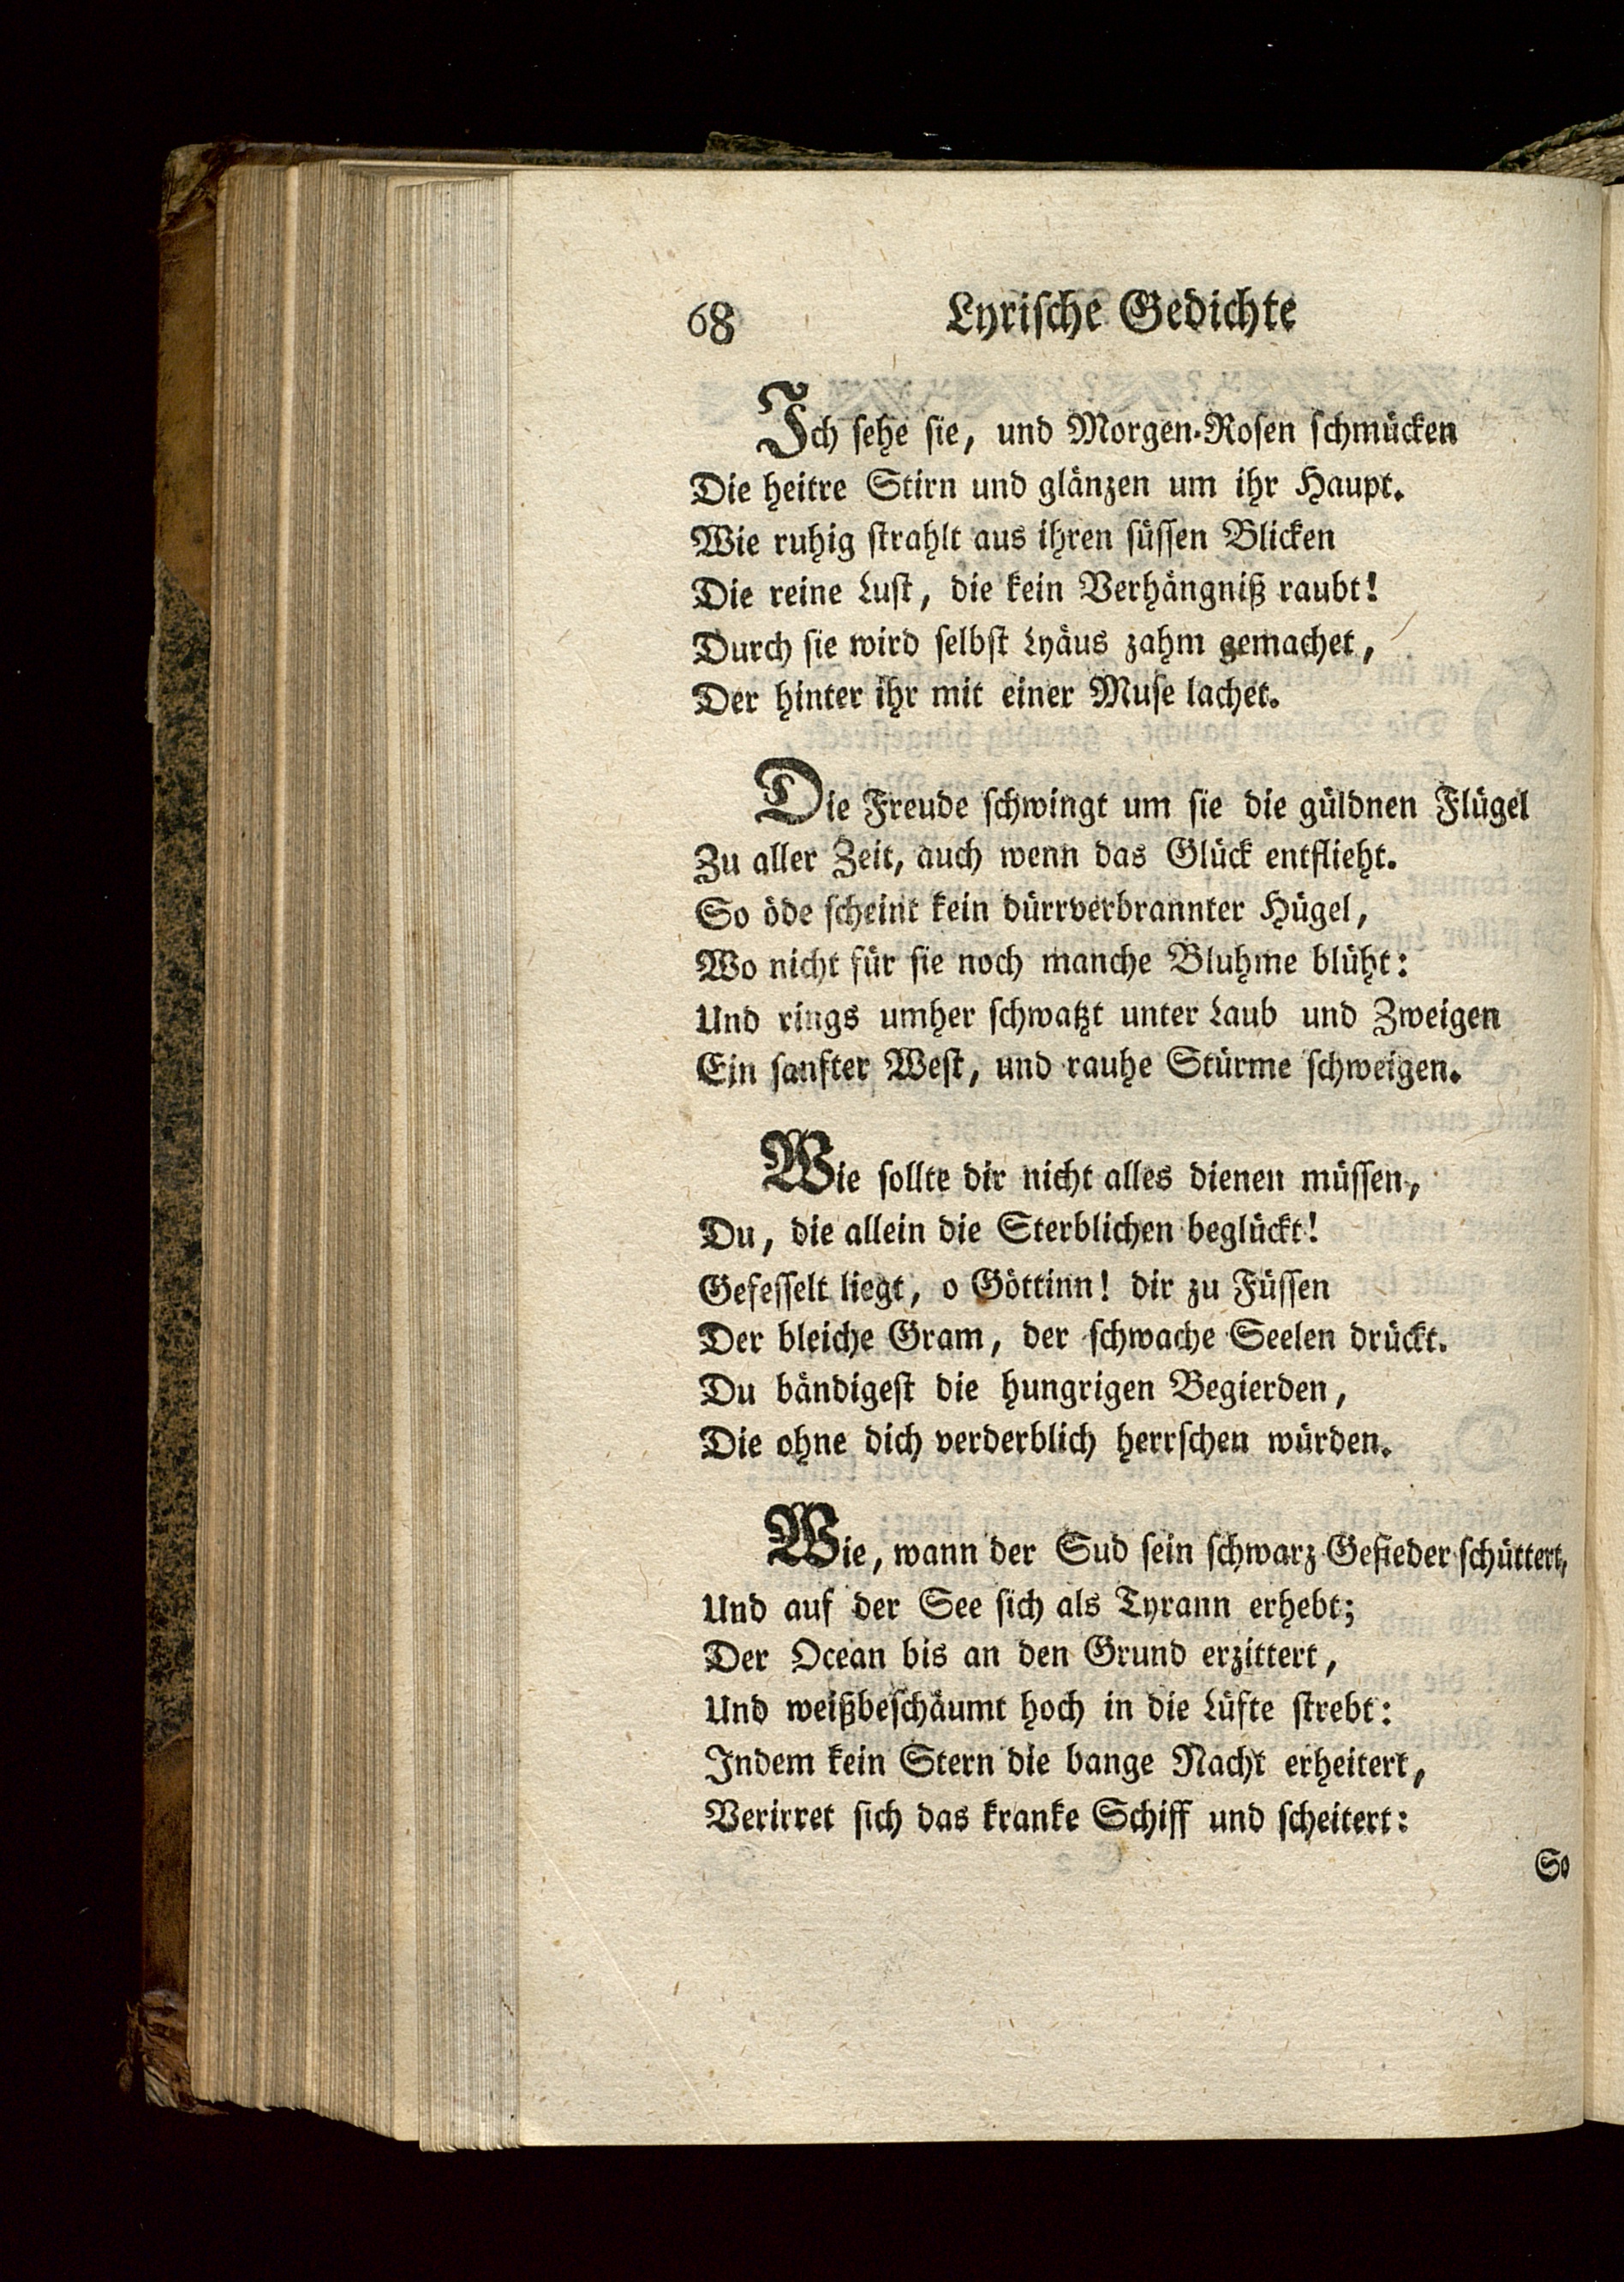 68 Lyriſche Gedichte
Ich ſehe ſie, und Morgen-Roſen ſchmücken
Die heitre Stirn und glänzen um ihr Haupt.
Wie ruhig ſtrahlt aus ihren ſüſſen Blicken
Die reine Luſt, die kein Verhängniß raubt!
Durch ſie wird ſelbſt Lyäus zahm gemachet,
Der hinter ihr mit einer Muſe lachet.
Die Freude ſchwingt um ſie die güldnen Flügel
Zu aller Zeit, auch wenn das Glück entflieht.
So öde ſcheint kein dürrverbrannter Hügel,
Wo nicht für ſie noch manche Bluhme blüht:
Und rings umher ſchwatzt unter Laub und Zweigen
Ein ſanfter Weſt, und rauhe Stürme ſchweigen.
Wie ſollte dir nicht alles dienen müſſen,
Du, die allein die Sterblichen beglückt!
Gefeſſelt liegt, o Göttinn! dir zu Füſſen
Der bleiche Gram, der ſchwache Seelen drückt.
Du bändigeſt die hungrigen Begierden,
Die ohne dich verderblich herrſchen würden.
Wie, wann der Sud ſein ſchwarz Gefieder ſchüttert,
Und auf der See ſich als Tyrann erhebt;
Der Ocean bis an den Grund erzittert,
Und weißbeſchäumt hoch in die Lüfte ſtrebt:
Indem kein Stern die bange Nacht erheitert,
Verirret ſich das kranke Schiff und ſcheitert:
So